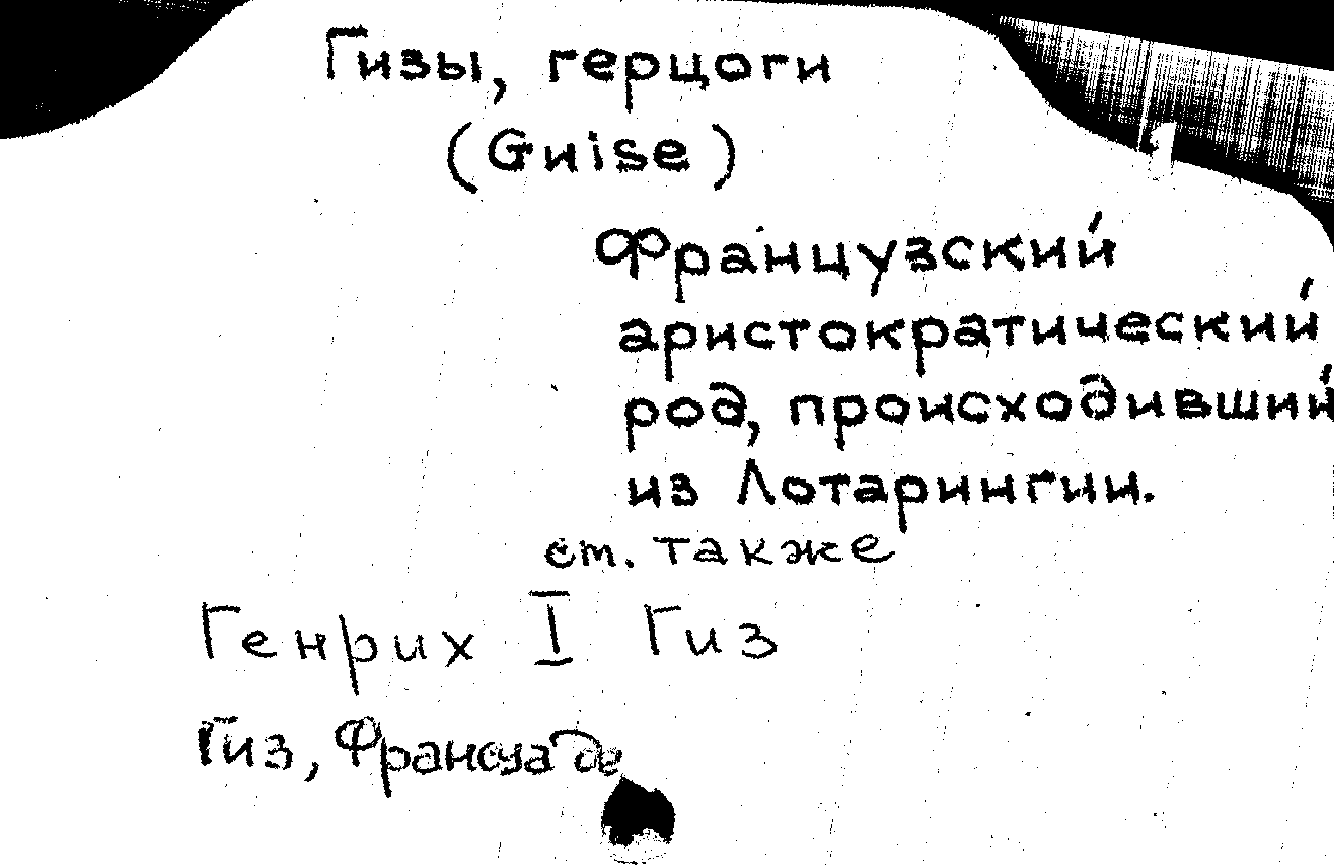 Гизы, герцоги
(Guise)
Французский
аристократический
род, происходивший
из Лотарингии.
см. также
Генрих I Гиз
Гиз, Франсуа де